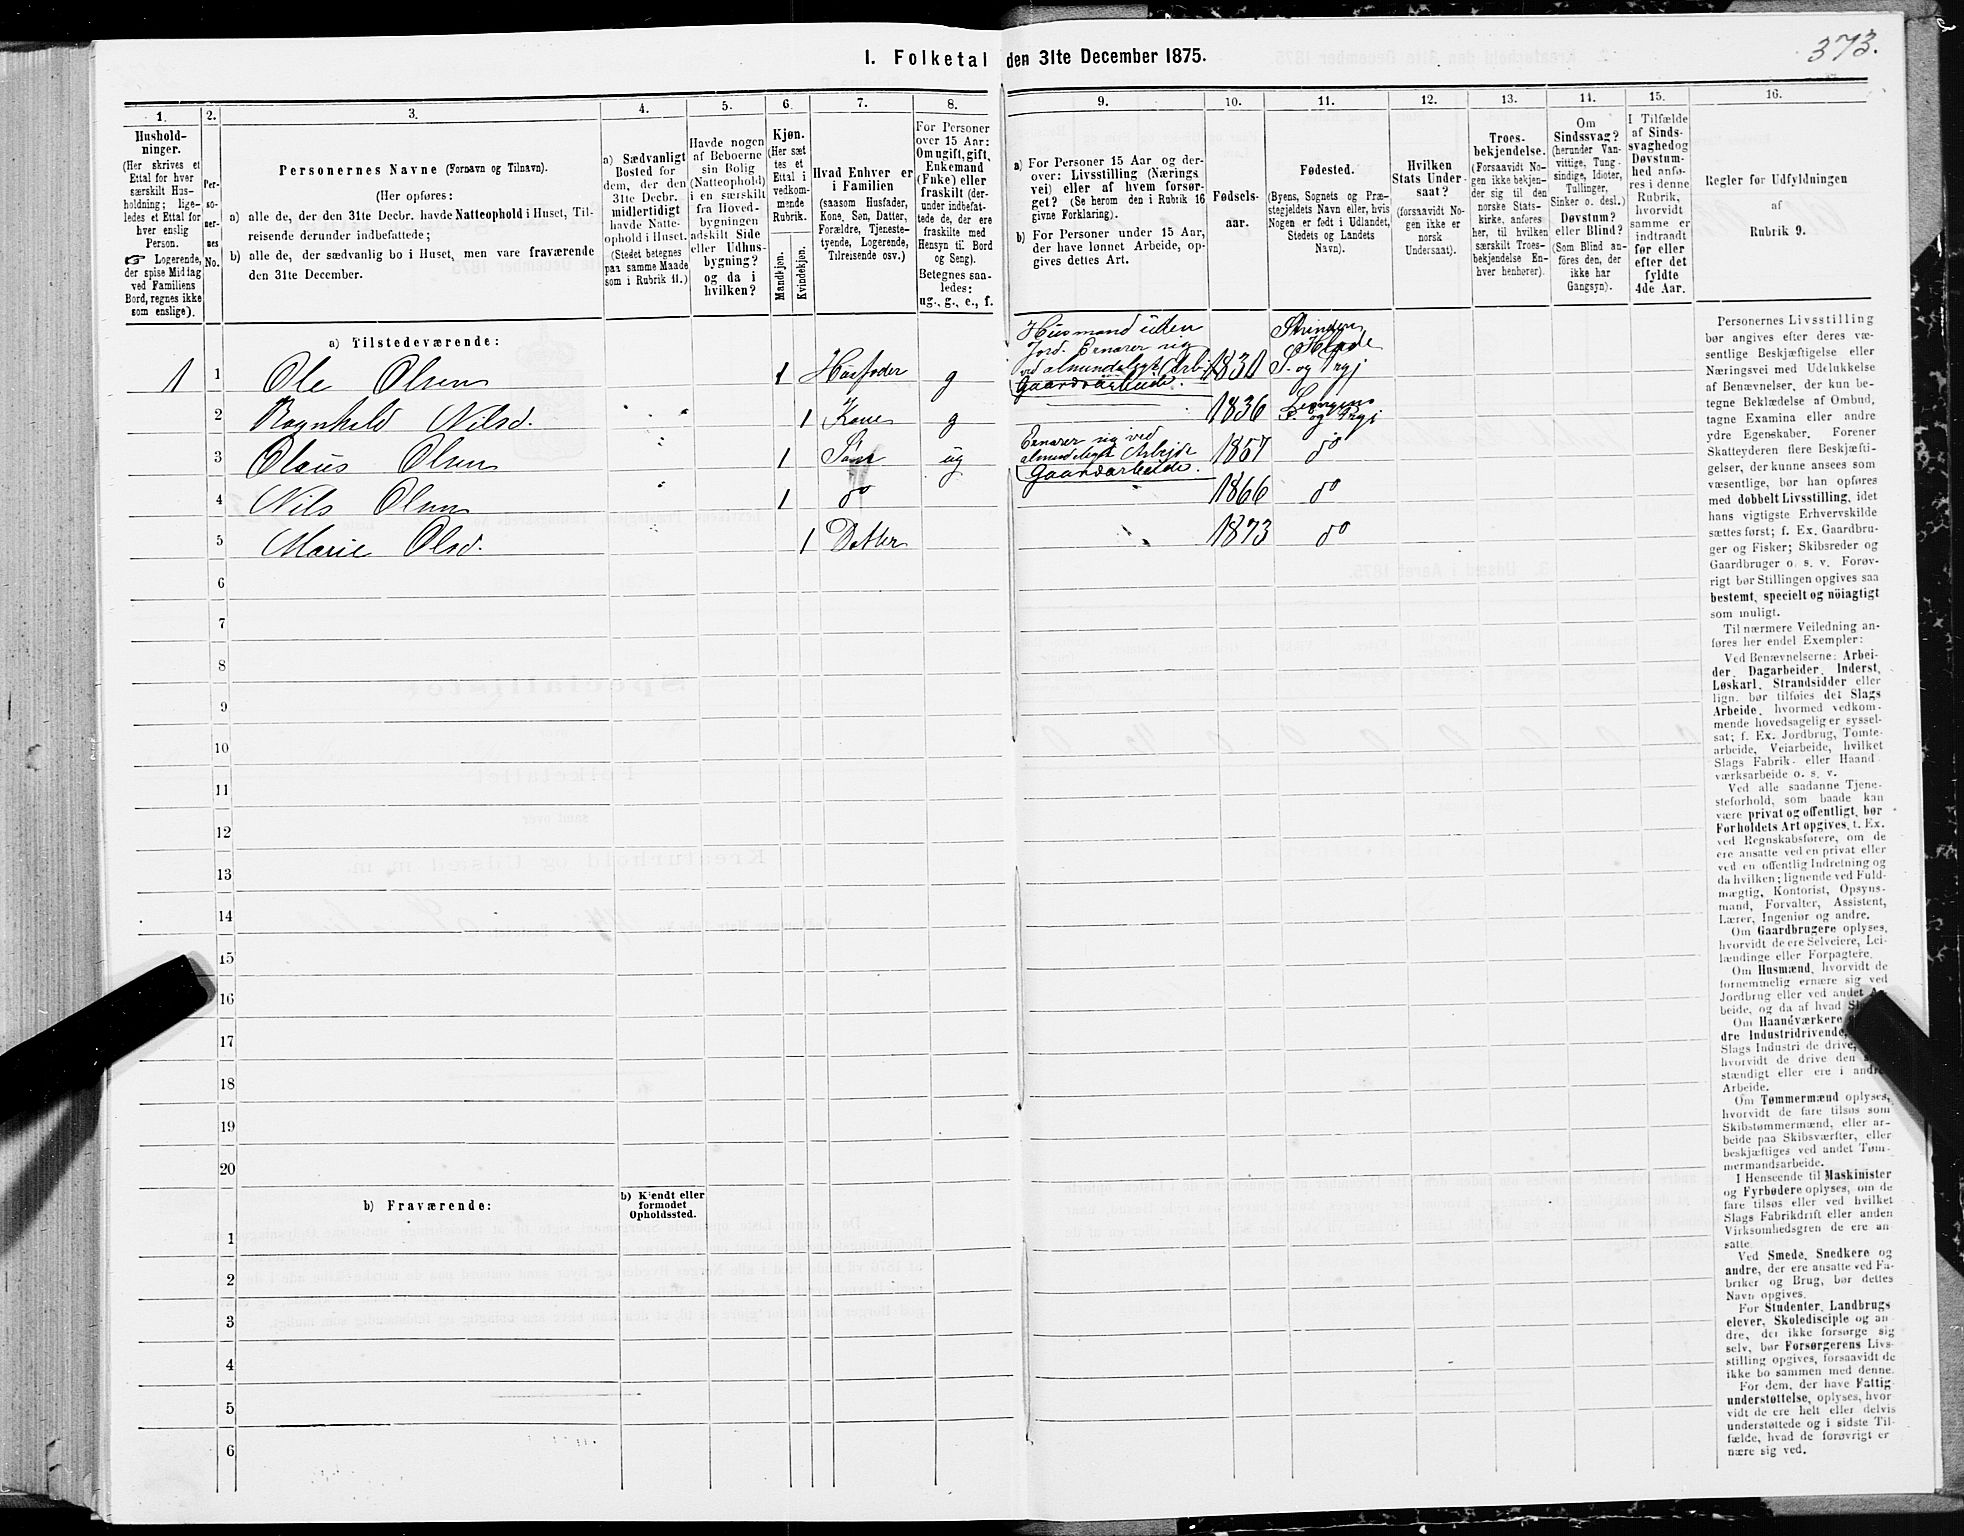 I. Folketal den 31te December 1875.
373.
1.
Hushold-
ninger.
(Her skrives et
Ettal for hver
særskilt Hus-
holdning; lige-
ledes et Ettal for
hver enslig
Person.
☞ Logerende,
der spise Middag
ved Familiens
Bord, regnes ikke
som enslige).
2.
Per-
so-
ner-
nes
No.
3.
Personernes Navne (Fornavn og Tilnavn).
(Her opføres:
a) alle de, der den 31te Decbr. havde Natteophold i Huset, Til-
reisende derunder indbefattede;
b) alle de, der sædvanlig bo i Huset, men vare fraværende
den 31te December.
4.
a) Sædvanligt
Bosted for
dem, der den
31te Decbr.
midlertidigt
havde Natte-
ophold i Huset.
(Stedet betegnes
paa samme Maade
som i Rubrik 11.)
5.
Havde nogen
af Beboerne
sin Bolig
(Natteophold)
i en særskilt
fra Hoved-
bygningen
adskilt Side
eller Udhus-
bygning?
og da i
hvilken?
6.
Kjøn.
(Her sæt
tes et
Ettal i
vedkom-
mende
Rubrik.
Mandkjøn.
Kvindekjøn.
7.
Hvad Enhver er
i Familien
(saasom Husfader,
Kone, Søn, Datter,
Forældre, Tjeneste-
tyende, Logerende,
Tilreisende osv.)
8.
For Personer
over 15 Aar:
Om ugift, gift,
Enkemand
(Enke) eller
fraskilt (der-
under indbefat-
tede de, der ere
fraskilte med
Hensyn til Bord
og Seng).
Betegnes saa-
ledes:
ug., g., e., f.
9.
a) For Personer 15 Aar og der-
over: Livsstilling (Nærings
vei) eller af hvem forsør-
get? (Se herom den i Rubrik 16
givne Forklaring).
b) For Personer under 15 Aar,
der have lønnet Arbeide, op-
gives dettes Art.
10.
Fødsels-
aar.
11.
Fødested.
(Byens, Sognets og Præ-
stegjeldets Navn eller, hvis
Nogen er født i Udlandet,
Stedets og Landets
Navn).
12.
Hvilken
Stats Under-
saat?
(forsaavidt No-
gen ikke er
norsk
Undersaat).
13.
Troes-
bekjendelse.
(Forsaavidt No-
gen ikke bekjen-
der sig til den
norske Stats-
kirke, anføres
her, til hvilken
særskilt Troes-
bekjendelse En-
hver henhører).
14.
Om
Sindssvag?
(herunder Van-
vittige, Tung-
sindige, Idioter,
Tullinger,
Sinker o. desl.)
Døvstum?
eller Blind?
(Som Blind an-
føres den, der
ikke har
Gangsyn).
15.
I Tilfælde
af Sinds-
svaghed og
Døvstum-
hed anfø-
res i denne
Rubrik,
hvorvidt
samme er
indtraadt
før eller
efter det
fyldte
4de Aar.
16.
Regler for Udfyldningen
af
Rubrik 9.
a) Tilstedeværende:
1 1 Ole Olsen 1 Husfader g Husmand uden
Jord. Ernærer sig
ved almindeligt Arb
Gaardsarbeide. 1830 Strinden
Hlade
S. og Prgj
2 Ragnhild Nilsd. 1 Kone g 1836 S. og Prgj
3 Olaus Olsen 1 Søn ug Ernærer sig ved
almindeligt Arbejde
Gaardsarbeide. 1857 do
4 Nils Olsen 1 do 1866 do
5 Marie Olsd. 1 Datter 1873 do
6
7
8
9
10
11
12
13
14
15
16
17
18
19
20
b) Fraværende:
b) Kjendt eller
formodet
Opholdssted.
1
2
3
4
5
6
Personernes Livsstilling
bør angives efter deres væ-
sentlige Beskjæftigelse eller
Næringsvei med Udelukkelse
af Benævnelser, der kun be-
tegne Beklædelse af Ombud,
tagne Examina eller andre
ydre Egenskaber. Forener
Skatteyderen flere Beskjæfti-
gelser, der kunne ansees som
væsentlige, bør han opføres
med dobbelt Livsstilling, idet
hans vigtigste Erhvervskilde
sættes først; f. Ex. Gaardbru-
ger og Fisker; Skibsreder og
Gaardbruger o. s. v. Forøv-
rigt bør Stillingen opgives saa
bestemt, specielt og nøiagtigt
som muligt.
Til nærmere Veiledning an-
føres her endel Exempler:
Ved Benævnelserne: Arbei-
der, Dagarbeider, Inderst,
Løskarl, Strandsidder eller
lign. bør tilføies det Slags
Arbeide, hvormed vedkom-
mende hovedsagelig er syssel-
sat; f. Ex. Jordbrug, Tomte-
arbeide, Veiarbeide, hvilket
Slags Fabrik- eller Haand
værksarbeide o. s. v.
Ved alle saadanne Tjene-
steforhold, som baade kan
være privat og offentligt, bør
Forholdets Art opgives, t. Ex.
ved Regnskabsførere, om de
ere ansatte ved en privat eller
ved en offentlig Indretning og
da hvilken; lignende ved Fuld-
mægtig, Kontorist, Opsyns-
mand, Forvalter, Assistent,
Lærer, Ingeniør og andre.
Om Gaardbrugere oplyses,
hvorvidt de ere Selveiere, Lei-
lændinge eller Forpagtere.
Om Husmænd, hvorvidt de
fornemmelig ernære sig ved
Jordbrug eller ved andet Ar-
beide, og da af hvad
Om Haandværkere
dre Industridrivende,
Slags Industri de drive,
hvorvidt de drive den
stændigt eller ere i andre
Arbeide.
Om Tømmermænd oplyses,
hvorvidt de fare tilsøs som
Skibstømmermænd, eller ar-
beide paa Skibsværfter, eller
beskjæftiges ved andet Tøm-
mermandsarbeide.
I Henseende til Maskinister
og Fyrbødere oplyses, om de
fare tilsøs eller ved hvilket
Slags Fabrikdrift eller anden
Virksomhedsgren de ere an-
satte.
Ved Smede, Snedkere og
andre, der ere ansatte ved Fa-
briker og Brug, bør dettes
Navn opgives.
For Studenter, Landbrugs
elever, Skoledisciple og an-
dre, der ikke forsørge sig
selv, bør Forsørgerens Livs-
stilling opgives, forsaavidt de
ikke bo sammen med denne.
For dem, der have Fattig-
understøttelse, oplyses, hvor-
vidt de ere helt eller delvis
understøttede og i sidste Til-
fælde, hvad de forøvrigt er
nære sig ved.